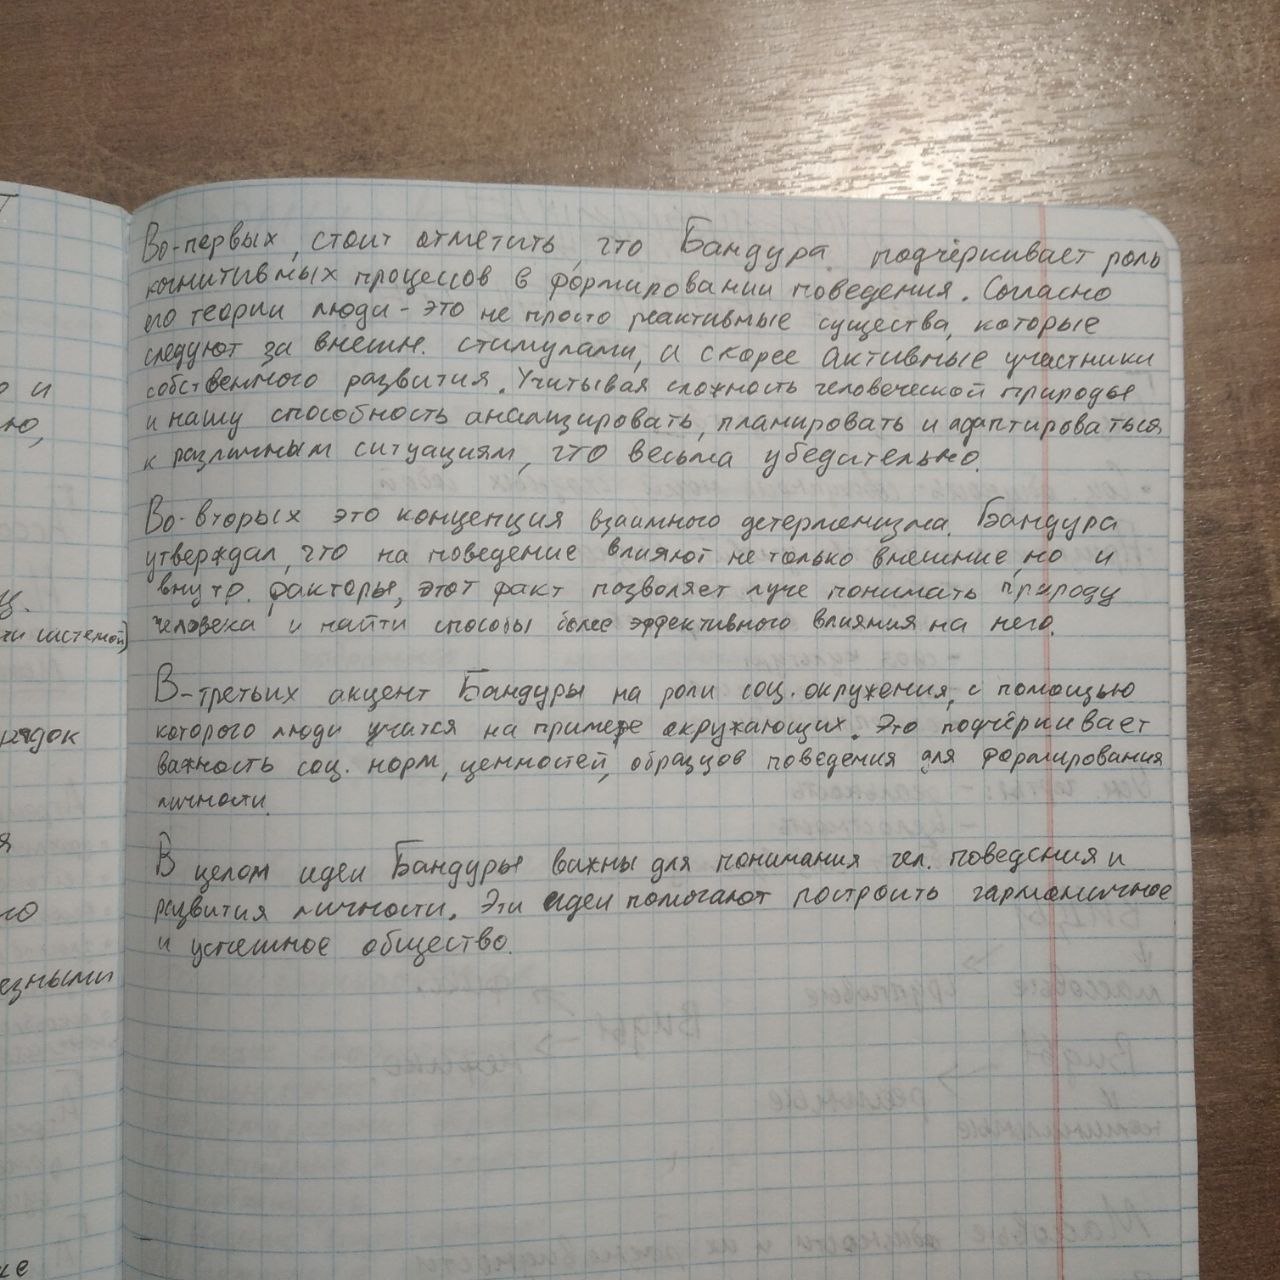 Во-первых, стоит отметить, что Бандура подчёркивает роль
когнитивных процессов в формировании поведения. Согласно
его теории люди - это не просто реактивные существа, которые
следуют за внешн. стимулами, а скорее активные участники
собственного развития. Учитывая сложность человеческой природы
и нашу способность анализировать, планировать и адаптироваться
к различным ситуациям, что весьма убедительно.
Во-вторых это концепция взаимного детерменизма. Бандура
утверждал, что на поведение влияют не только внешние, но и
внутр. факторы, этот факт позволяет луче понимать природу
человека и найти способы более эффективного влияния на него.
В-третьих акцент Бандуры на роли соц. окружения, с помощью
которого люди учатся на примере окружающих. Это подчёркивает
важность соц. норм, ценностей, образцов поведения для формирования
личности.
В целом идеи Бандуры важны для понимания чел. поведения и
развития личности. Эти идеи помогают построить гармоничное
и успешное общество.
о и
ю,
ц.
системой)
рядок
я
но
езными
ие